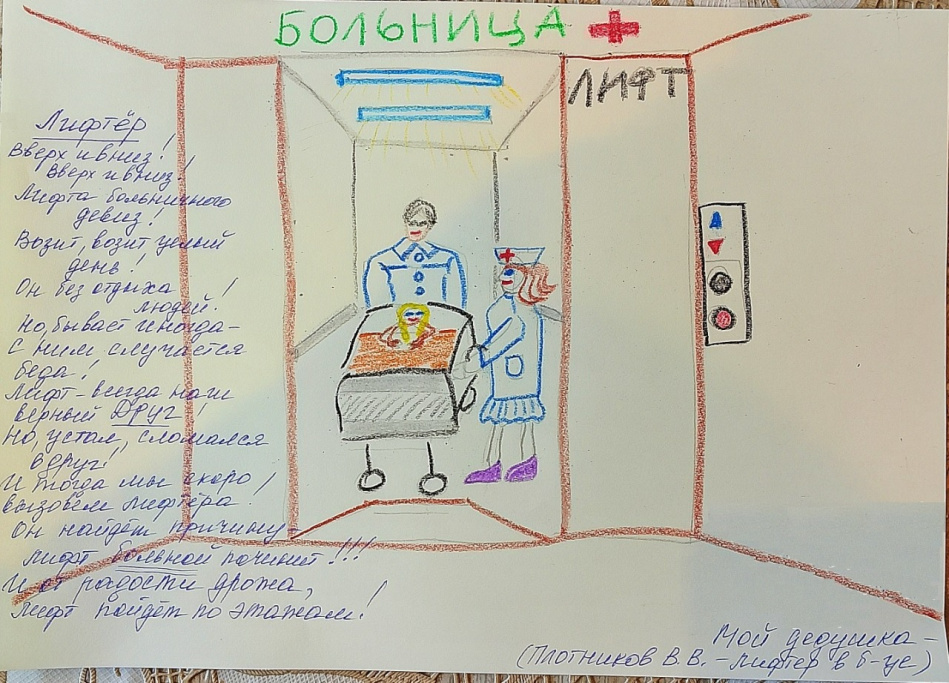 БОЛЬНИЦА
ЛИФТ
Лифтёр
Вверх и вниз!
Вверх и вниз!
Лифта больничного
девиз!
Возит, возит целый
день!
Он без отдыха !
людей.
Но, бывает иногда-
С ним случается
беда!
Лифт - всегда наш
верный Друг!
Но, устал, сломался
вдруг!
И тогда мы скоро !
вызовем лифтёра.
Он найдёт причину-
Лифт больной починит!!!
И от радости дрожа,
Лифт пойдёт по этажам!
Мой дедушка-
(Плотников В.В. - лифтер в б-це)